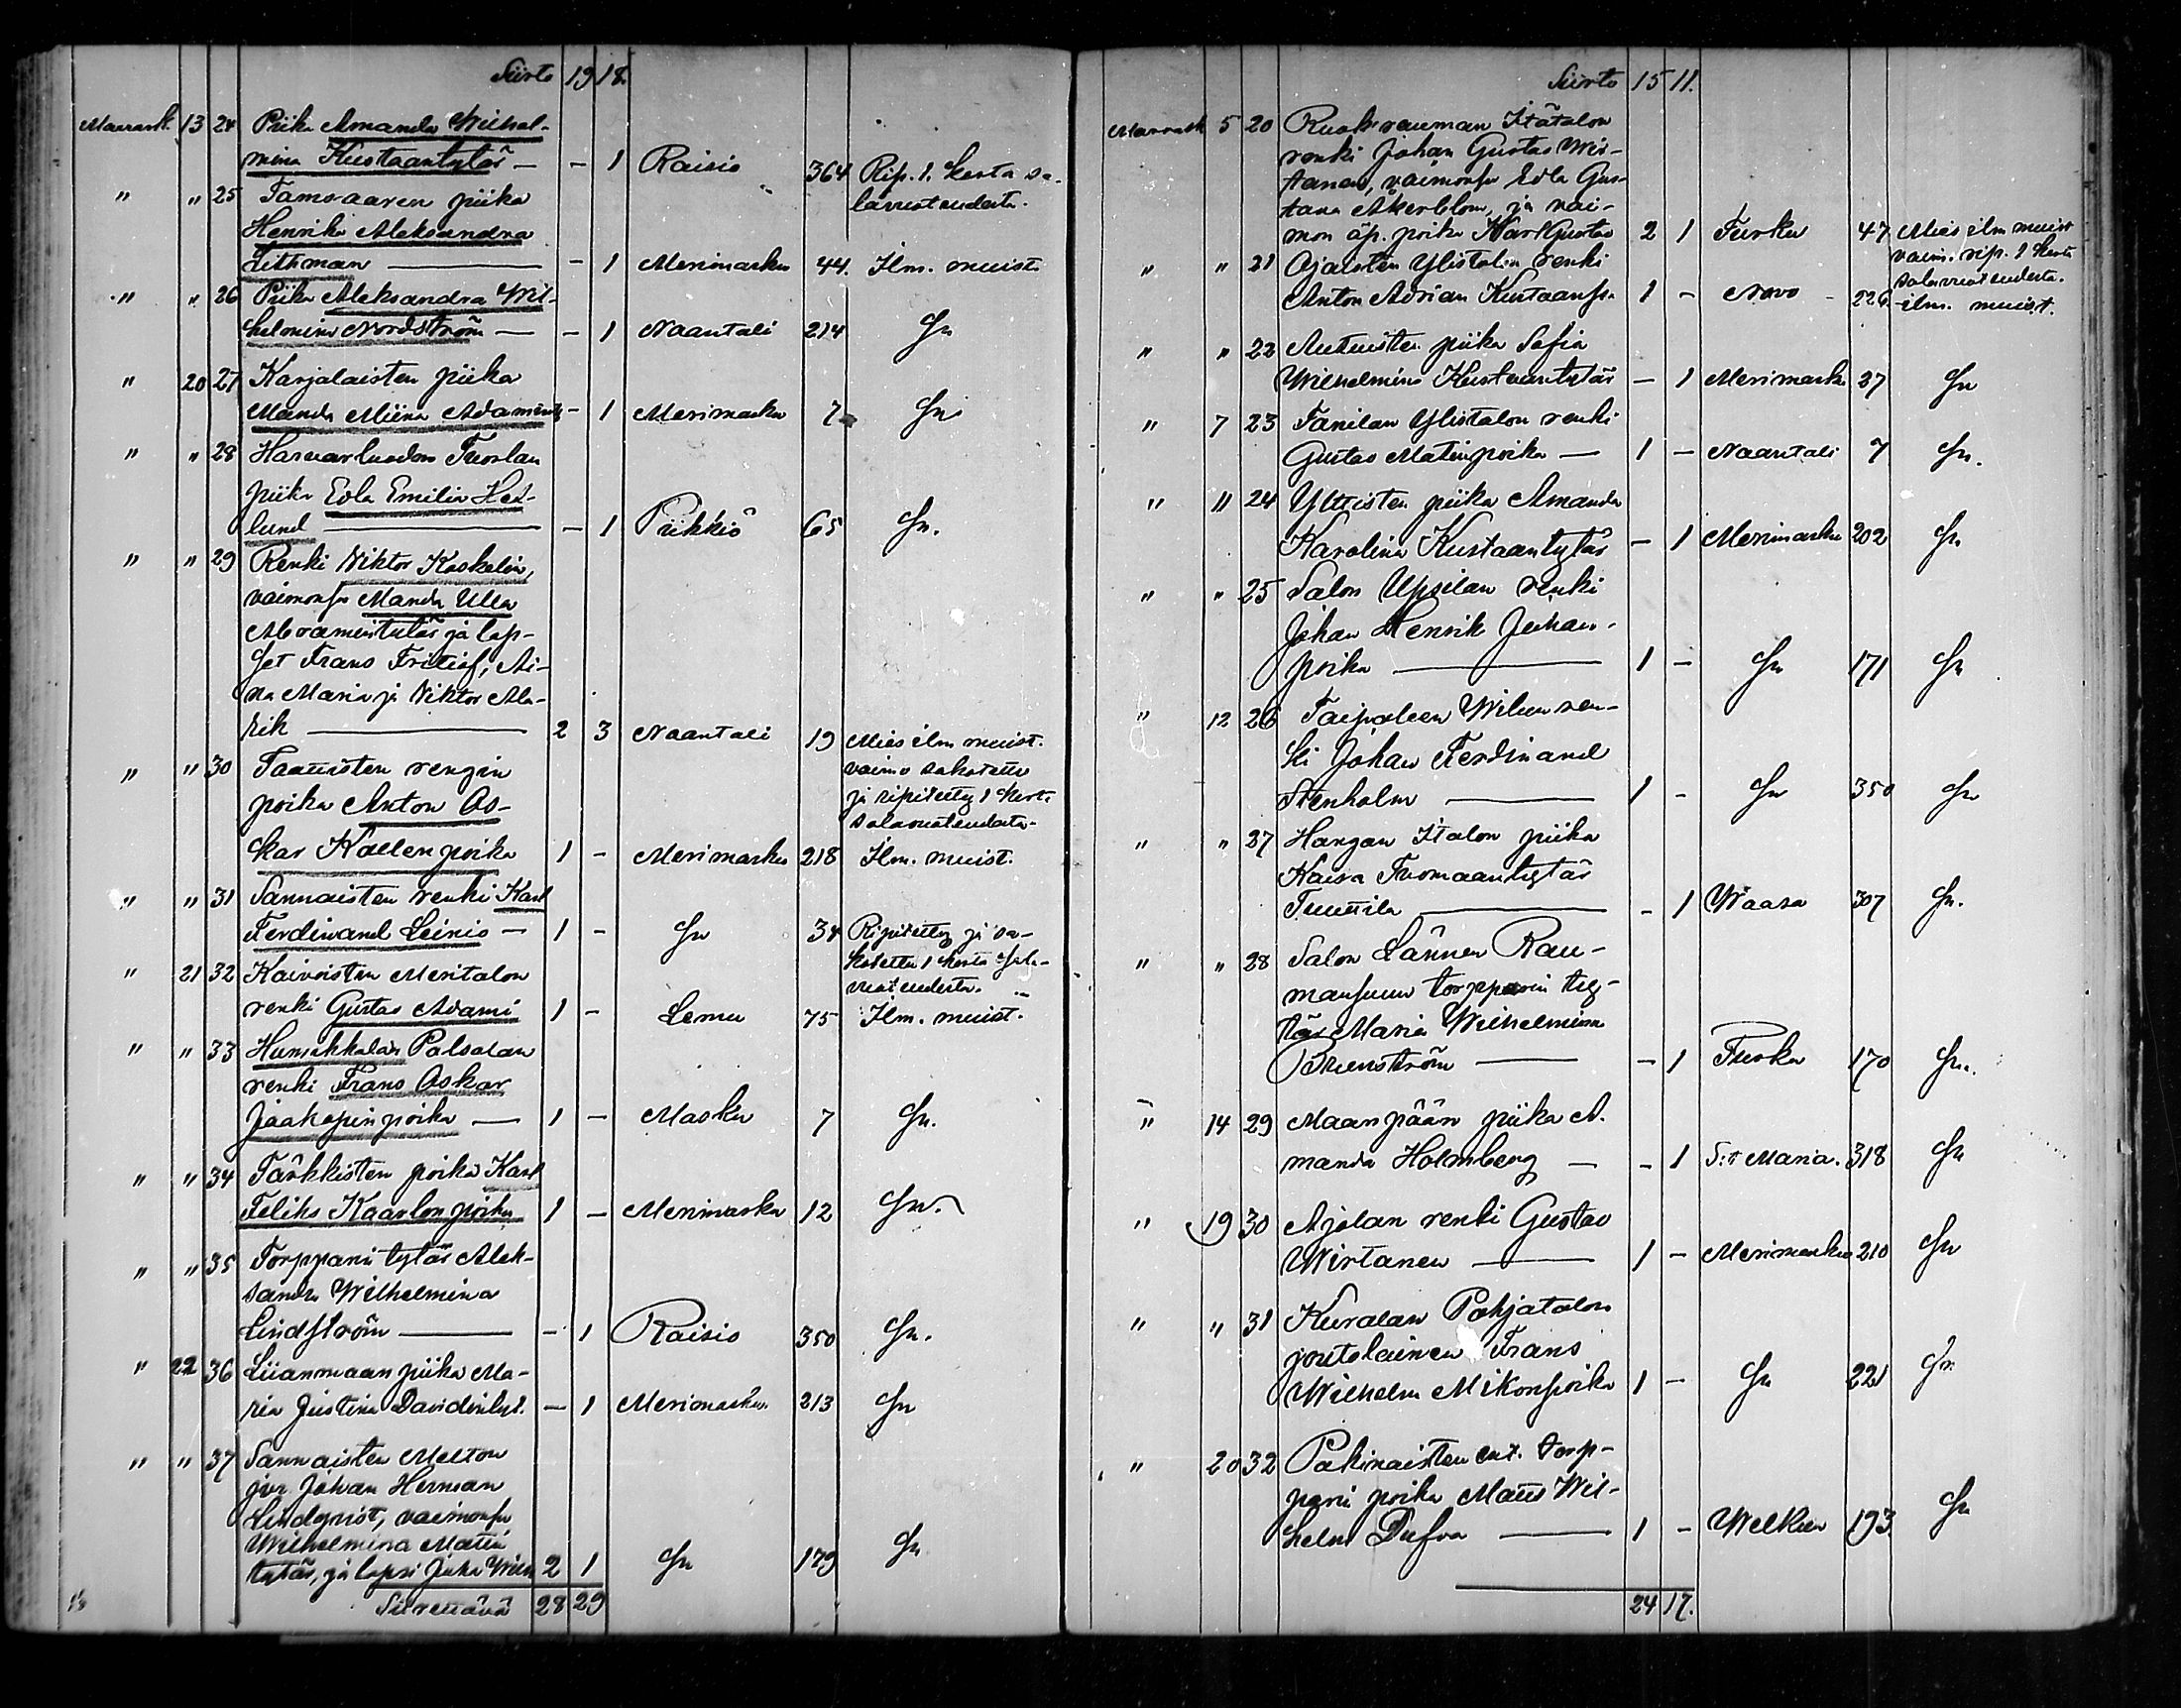 Siirto 19 18.
Marrask. 13 24 Piika Amanda Wilhel-
mina Kustaantytär — - 1 Raisio 364 Rip. 1. kerta sa-
" " 25 Tamsaaren piika lavuoteudesta.
Henrika Aleksandra
Lithman — - 1 Merimasku 44. Ilm. muist.
" " 26 Piika Aleksandra Wil-
helmina Nordström — - 1 Naantali 214 Sn
" 20 27 Karjalaisten piika
Manda Miina Adamint. - 1 Merimasku 7 Sn
" " 28 Harvaluodon Tuorlan
piika Edla Emilia Hed-
lund — - 1 Piikkiö 65 Sn.
" " 29 Renki Viktor Koskelin,
vaimonsa Manda Ulla
Abramintytär ja lap-
set Frans Fritiof, Ai-
na Maria ja Viktor Ala-
rik — 2 3 Naantali 19 Mies ilm muist.
" " 30 Taattisten rengin vaimo sakotettu
poika Anton Os- ja ripitetty 1 kert.
salavuoteudesta.
kar Kallenpoika 1 - Merimasku 218 Ilm. muist.
" " 31 Sannaisten renki Karl
Ferdinand Leinio — 1 - Sn 34 Ripitetty ja sa-
" 21 32 Kaivoisten Meritalon kotettu 1 kerta sala-
vuoteudesta.
renki Gustav Adami 1 - Lemu 75 Ilm. muist.
" " 33 Humikkalan Palsalan
renki Frans Oskar
Jaakopinpoika — 1 - Masku 7 Sn.
" " 34 Tärkkisten poika Karl
Feliks Kaarlonpoika 1 - Merimasku 12 Sn.
" " 35 Torpparin tytär Alek-
sandra Wilhelmina
Lindström — - 1 Raisio 350 Sn.
" 22 36 Liianmaan piika Ma-
ria Justina Davidintyt. - 1 Merimasku 213 Sn
" " 37 Sannaisten Melton
Johan Herman
Lindqvist, vaimonsa
Wilhelmina Matin
tytär, ja lapsi Juha Wilh 2 1 Sn 179 Sn
Siirrettävä 28 29
Siirto 15 11.
Marrask 5 20 Ruokrauman Itätalon
renki Johan Gustav Wir-
tanen, vaimonsa Edla Gus-
tava Åkerblom, ja vai-
mon äp. poika Karl Gustav 2 1 Turku 47 Mies ilm muist
" " 21 Ajaisten Ylistalon renki vaim. rip. 1 kerta
salavuoteudesta.
Anton Adrian Kustaanp. 1 - Navo 226 ilm. muist.
" " 22 Autuisten piika Sofia
Wilhelmina Kustaantytär - 1 Merimasku 37 Sn
" 7 23 Tanilan Ylistalon renki
Gustav Matinpoika — 1 - Naantali 7 Sn.
" 11 24 Ylttisten piika Amanda
Karolina Kustaantytär - 1 Merimasku 202 Sn
" " 25 Salon Upsilan renki
Johan Henrik Juhan-
poika — 1 - Sn 171 Sn
" 12 26 Taipaleen Wilun ren-
ki Johan Ferdinand
Stenholm — 1 - Sn 350 Sn
" " 27 Hangan Italon piika
Kaisa Tuomaantytär
Tuuttila — - 1 Waasa 307 Sn.
" " 28 Salon Lännen Rau-
mansuun torpparin tyt-
tär Maria Wilhelmina
Brunström — - 1 Turku 170 Sn.
" 14 29 Maanpään piika A-
manda Holmberg — - 1 S:t Maria. 318 Sn
" 19 30 Ajolan renki Gustav
Wirtanen — 1 - Merimasku 210 Sn
" " 31 Kuralan Pohjatalon
joutolainen Frans
Wilhelm Mikonpoika 1 - Sn 221 Sn
" 20 32 Pakinaisten ent. torp-
parin poika Matts Wil-
helm Dufva — 1 - Welkua 193 Sn
24 17.